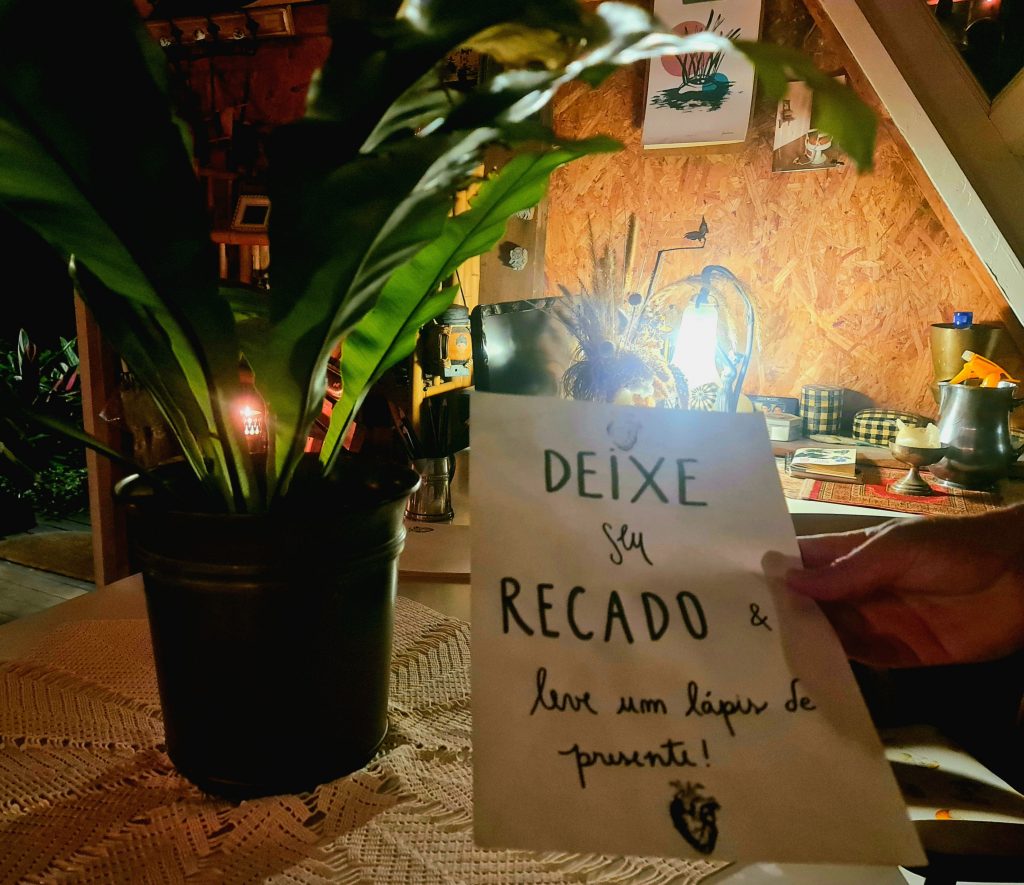 DEIXE
seu
RECADO &
leve um lápis de
presente!